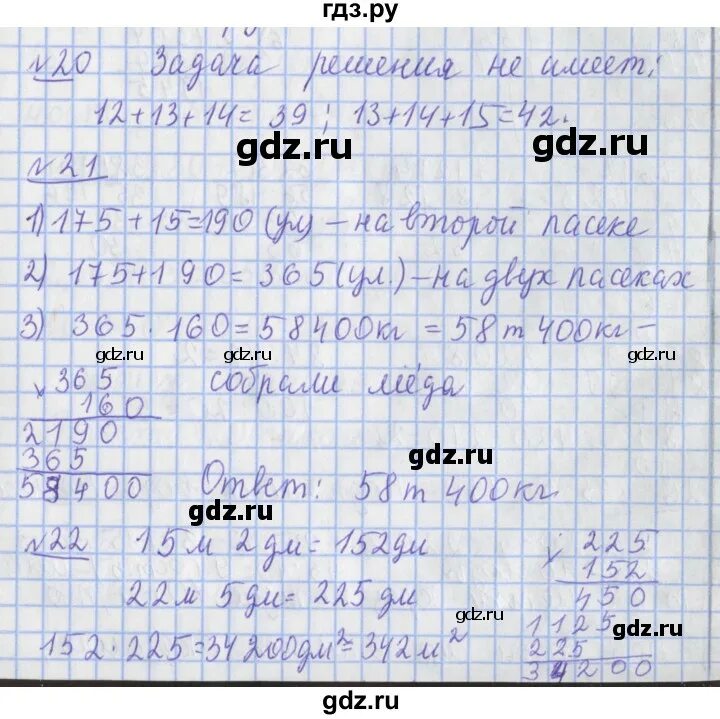 гдз.ру
№20 Задача решения не имеет;
12+13+14=39; 13+14+15=42.
gdz.ru
gdz.ru
№21
1) 175+15=190 (ул) – на второй пасеке
2) 175+190=365 (ул.) – на двух пасеках
3) 365·160=58400кг = 58т 400кг –
gdz.ru
gdz.ru
gdz.ru
собрали мёда
× 365
160
2190
365
58400
gdz.ru
Ответ: 58т 400кг
gdz.ru
№22 15м 2дм=152дм
22м 5дм=225дм
152·225=34200дм²=342м²
× 225
152
450
1125
225
34200
gdz.ru
gdz.ru
gdz.ru
gdz.ru